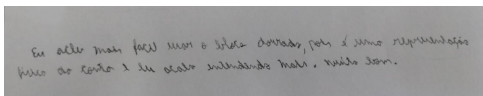 Eu acho mais facil usar o bloco dourado, pois é uma representação
fisica da conta e eu acabo entendendo mais. Muito bom.